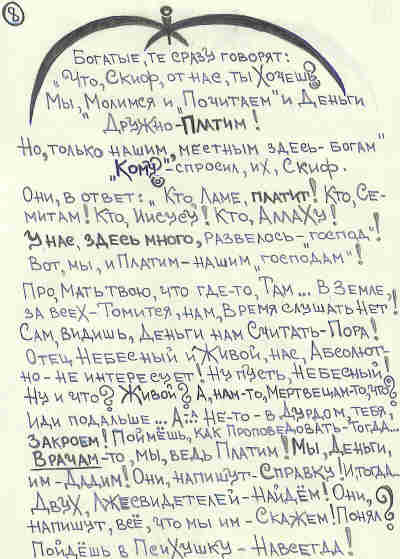 8
Богатые, те сразу говорят:
„Что, Скиф, от нас, ты Хочешь?
Мы, „Молимся и „Почитаем" и Деньги
Дружно-Платим!
Но, только нашим, „местным здесь-Богам"
„Кому?"-спросил, их, Скиф.
Они, в ответ: „Кто, Ламе, платит! Кто, Се-
митам! Кто, Иисусу! Кто, Аллаху!
У нас, здесь много, развелось-„господ"!
Вот, мы, и Платим-нашим „господам"!
Про, Мать твою, что где-то, Там... в Земле,
за всех-Томится, нам, Время слушать Нет!
Сам, видишь, Деньги нам Считать-Пора!
Отец, Небесный и Живой, нас, Абсолют-
но-не интересует! Ну пусть, Небесный!
Ну и что? Живой? А, нам-то, Мертвецам-то, что?
Иди подальше... А... Не-то-в Дурдом, тебя,
Закроем! Поймёшь, как проповедовать-тогда...
Врачам-то, мы, ведь Платим! Мы, Деньги,
им-Дадим! Они, напишут-Справку! И, тогда
Двух, Лжесвидетелей-Найдём! Они,
напишут, всё, что мы им-Скажем! Понял?
Пойдёшь в ПсиХушку-Навсегда!